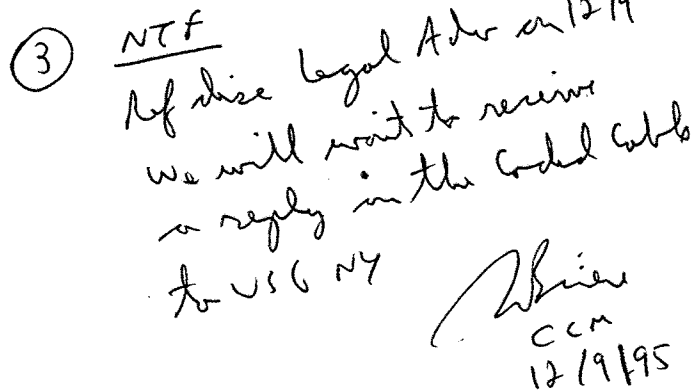 ③ NTF
Ref disc Legal Adv on 12/9
we will wait to receive
a reply in the Coded Cable
to USG NY
CCM
12/9/95